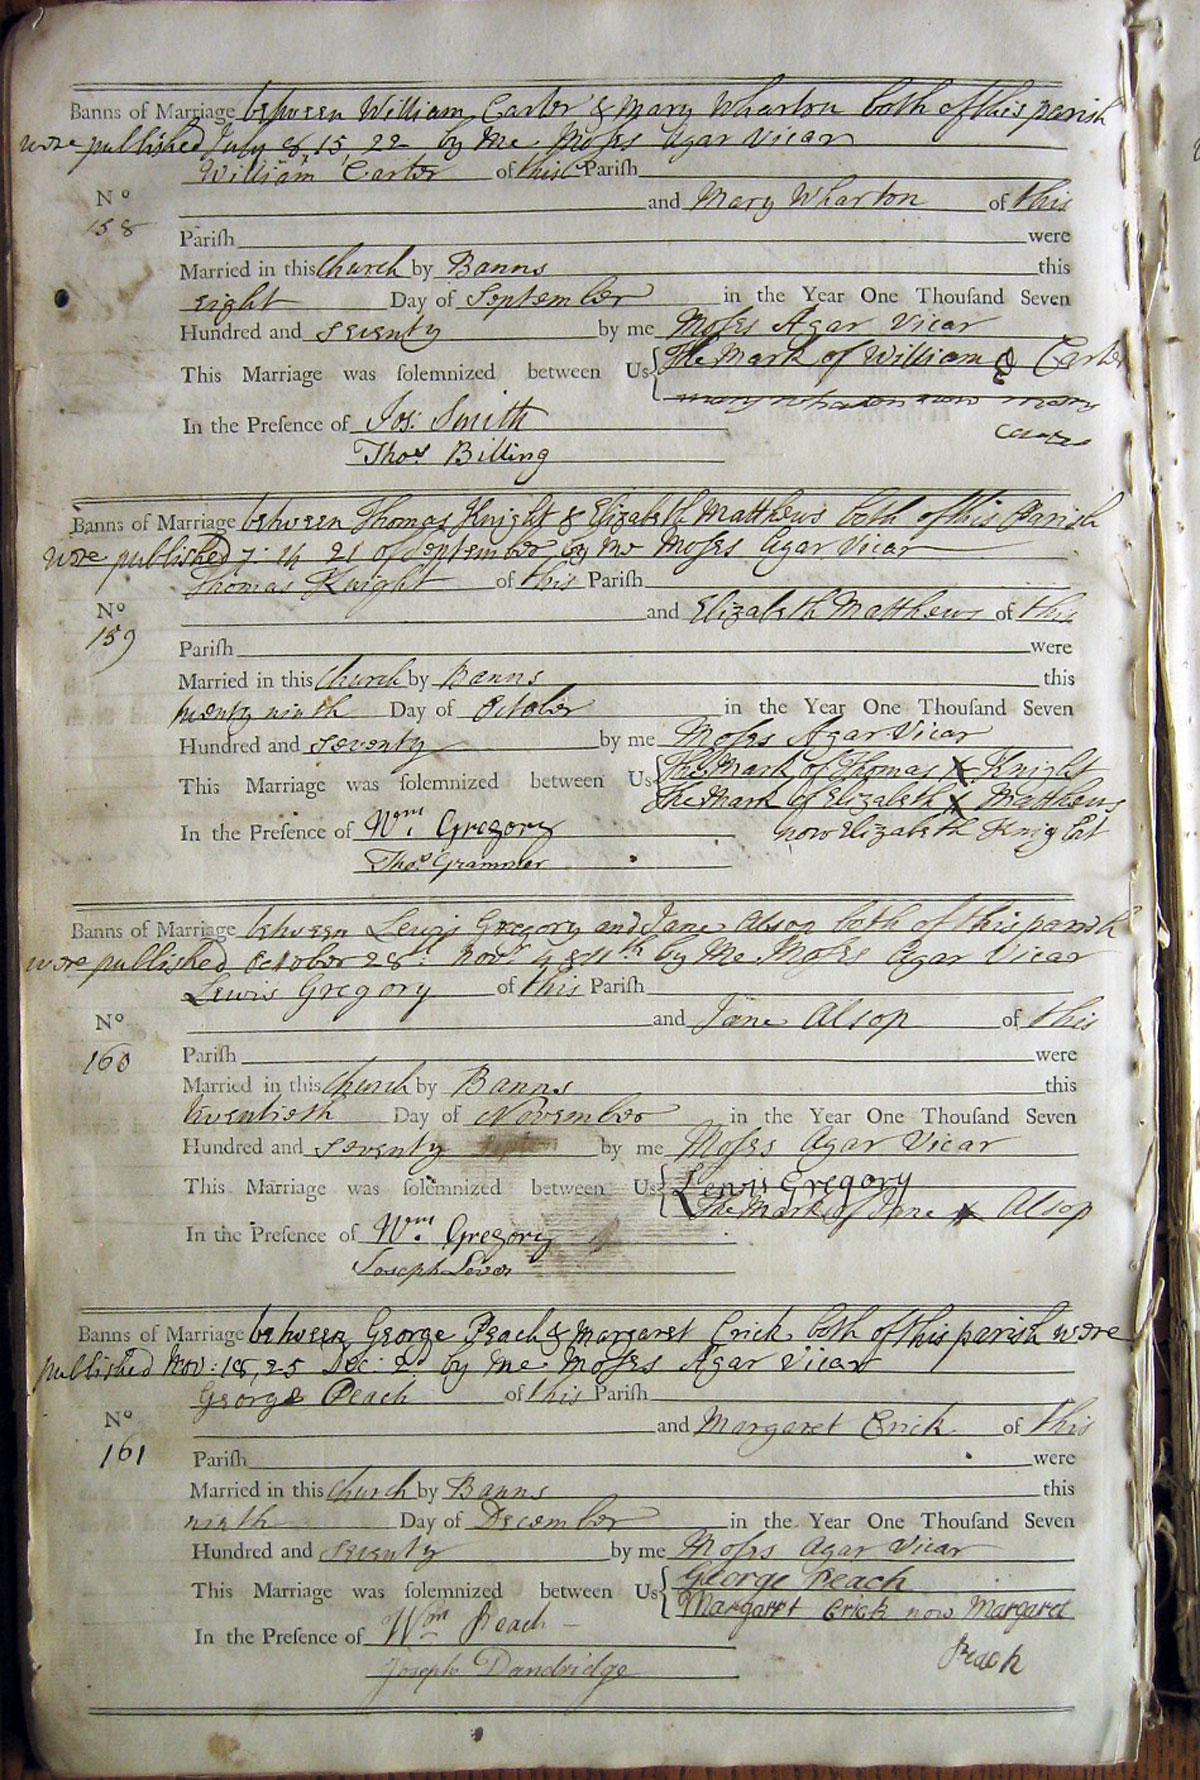 Banns of Marriage between William Carter & Mary Wharton both of this parish
were published July 8, 15, 22 by Me Moses Agar Vicar
William Carter of this Pariſh
Nº
and Mary Wharton of this
158
Pariſh were
Married in this Church by Banns this
eight Day of September in the Year One Thouſand Seven
Hundred and seventy by me Moſes Agar Vicar
This Marriage was ſolemnized between Us The Mark of William Carter
mary wharton now mary
carter
In the Preſence of Jos: Smith
Thos Billing
Banns of Marriage between Thomas Knight & Elizabeth Matthews both of this Parish
were published 7: 14 21 of September by Me Moſes Agar Vicar
Thomas Knight of this Pariſh
Nº
and Elizabeth Matthews of this
159
Pariſh were
Married in this Church by Banns this
twenty ninth Day of October in the Year One Thouſand Seven
Hundred and seventy by me Moſes Agar Vicar
This Marriage was ſolemnized between Us The Mark of Thomas X Knight
The Mark of Elizabeth X Matthews
now Elizabeth Knight
In the Preſence of Wm. Gregory
Thos Grammer
Banns of Marriage between Lewis Gregory and Jane Alsop both of this parish
were published October 28: Novr 4 & 11th by Me Moſes Agar Vicar
Lewis Gregory of this Pariſh
Nº
and Jane Alsop of this
160
Pariſh were
Married in this Church by Banns this
twentieth Day of November in the Year One Thouſand Seven
Hundred and seventy by me Moſes Agar Vicar
This Marriage was ſolemnized between Us Lewis Gregory
The Mark of Jane X Alsop
In the Preſence of Wm. Gregory
Joseph
Banns of Marriage between George Peach & Margaret Crick both of this parish were
published Nov: 18, 25 Dec: 2d by Me Moſes Agar Vicar
George Peach of this Pariſh
Nº
and Margaret Crick of this
161
Pariſh were
Married in this Church by Banns this
ninth Day of December in the Year One Thouſand Seven
Hundred and seventy by me Moſes Agar Vicar
This Marriage was ſolemnized between Us George Peach
Margaret Crick now Margaret
Peach
In the Preſence of Wm Peach
Joseph Dandridge